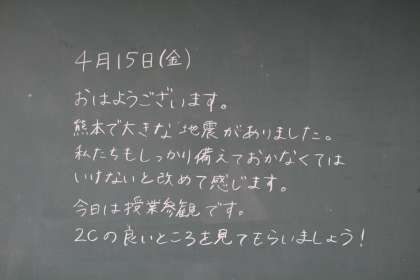 4月15日(金)
おはようございます。
熊本で大きな地震がありました。
私たちもしっかり備えておかなくては
いけないと改めて感じます。
今日は授業参観です。
2Cの良いところを見てもらいましょう!